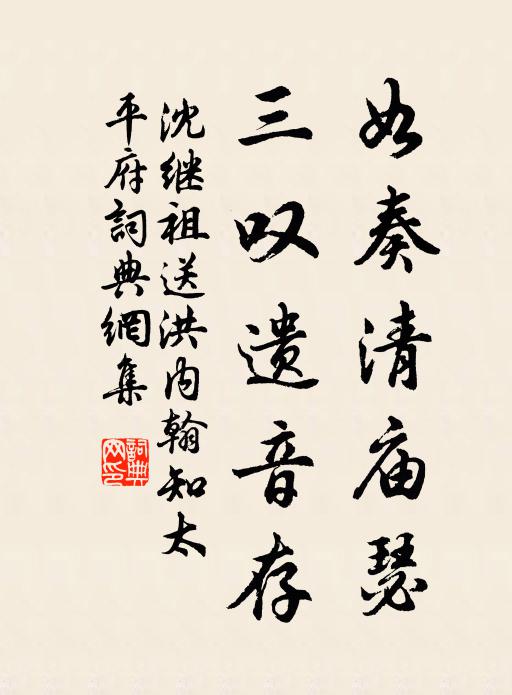 如奏清庙瑟
三叹遗音存
沈继祖送洪内翰知太
平府詞典網集
詞典網印